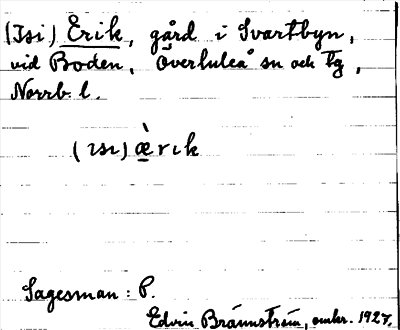 (Isi) Erik, gård i Svartbyn,
vid Boden, Överluleå sn och tg,
Norrb. l.
(ısı) æ̀rık
Sagesman: P.
Edvin Brännström, omkr. 1927.